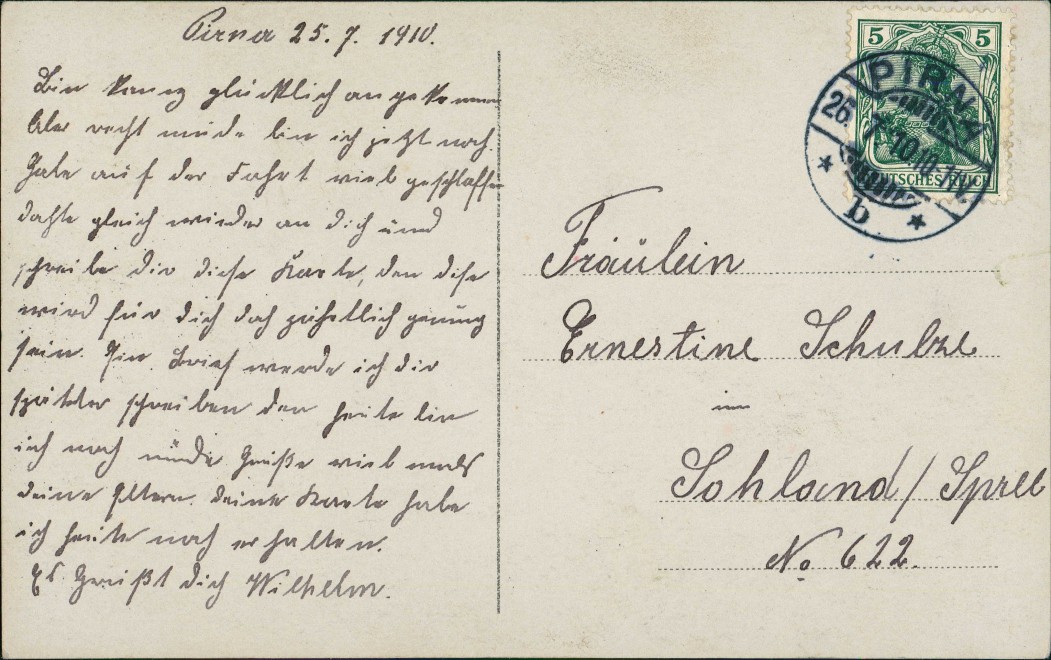 Pirna 25. 7. 1910.
Bin ganz glücklich angekommen
Aber recht müde bin ich jetzt noch.
Habe auf der Fahrt viel geschlaffen
dachte gleich wieder an dich und
schreibe dir diese Karte, den dise
wird für dich doch genug
sein. Ein Brief werde ich dir
später schreiben den heite bin
ich noch müde Grüße viel mals
deine Eltern. deine Karte habe
ich heite noch erhalten.
Es Grüßt dich Wilhelm.
5 5
DEUTSCHES REICH
PIRNA
26. 7. 10. 10-11V.
* b *
Fräulein
Ernestine Schulze
in
Sohland / Spree
No 622.